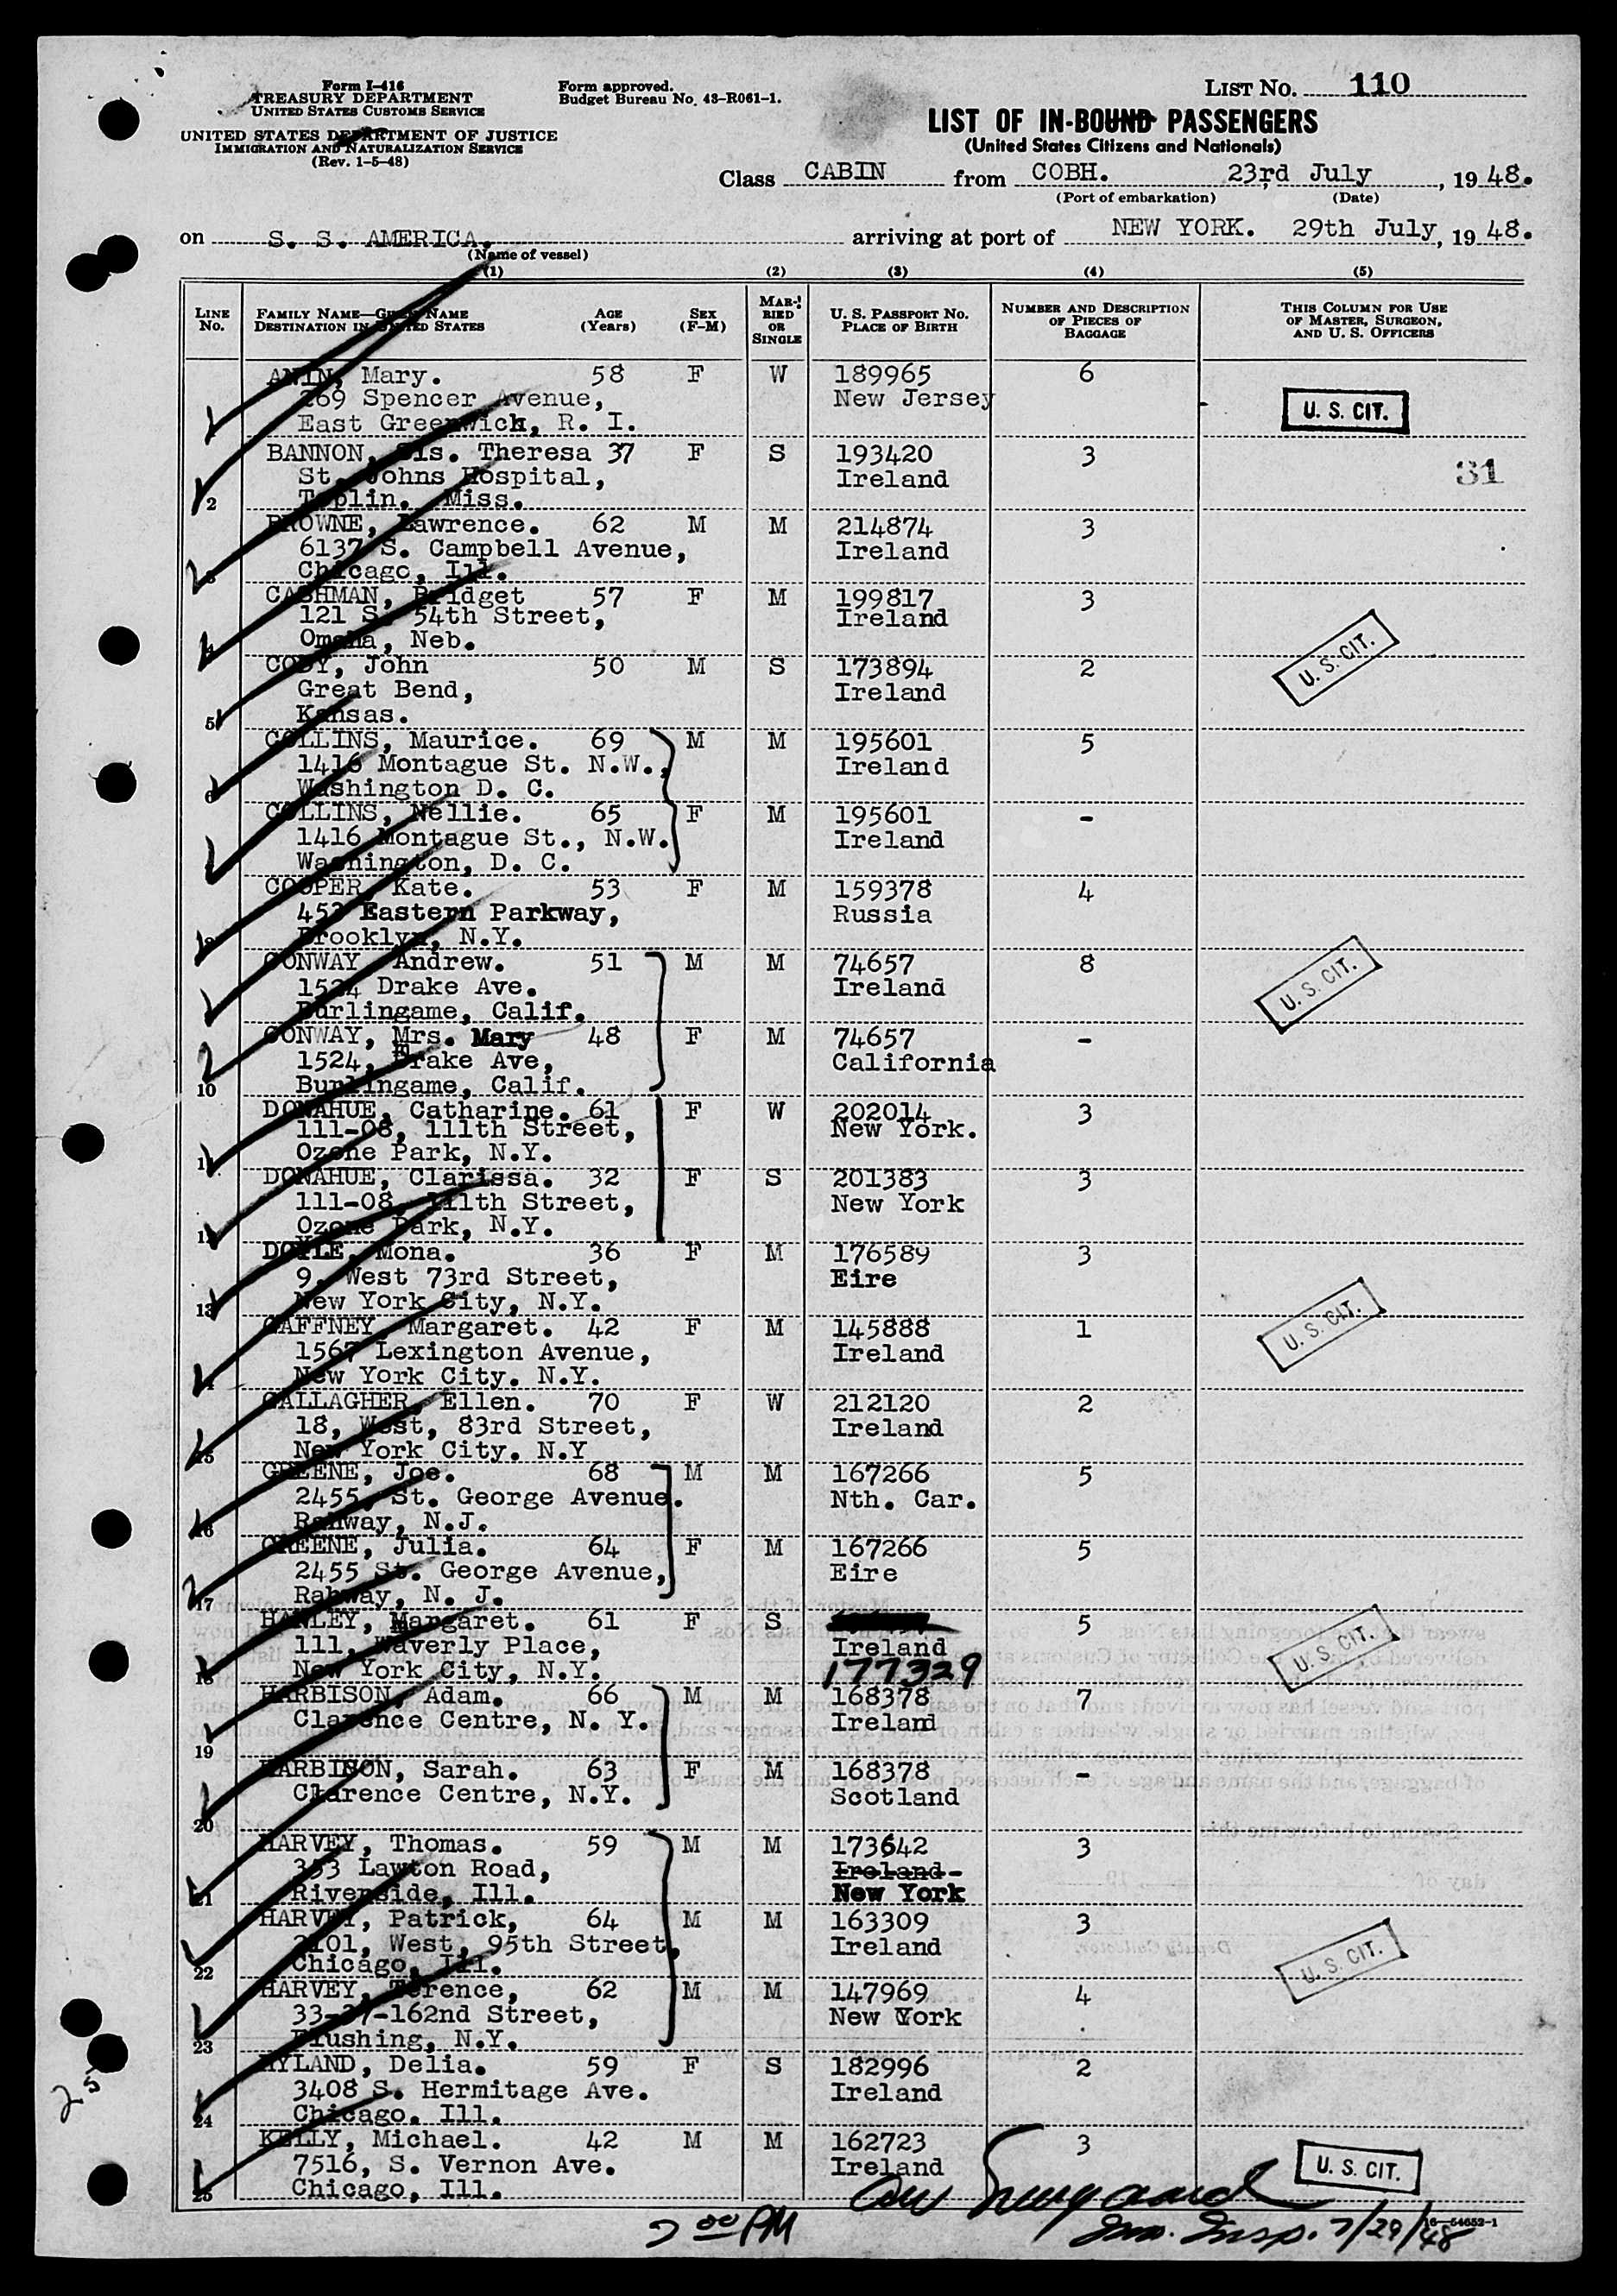 Form I-416
TREASURY DEPARTMENT
UNITED STATES CUSTOMS SERVICE
UNITED STATES DEPARTMENT OF JUSTICE
IMMIGRATION AND NATURALIZATION SERVICE
(Rev. 1-5-48)
Form approved.
Budget Bureau No. 43-R061-1.
LIST NO. 110
LIST OF IN-BOUND PASSENGERS
(United States Citizens and Nationals)
Class CABIN from COBH. 23rd July, 1948.
(Port of embarkation) (Date)
on S. S. AMERICA. arriving at port of NEW YORK. 29th July, 1948.
(Name of vessel)
(1) (2) (3) (4) (5)
LINE No. FAMILY NAME—GIVEN NAME DESTINATION IN UNITED STATES AGE (Years) SEX (F-M) MARRIED OR SINGLE U. S. PASSPORT NO. PLACE OF BIRTH NUMBER AND DESCRIPTION OF PIECES OF BAGGAGE THIS COLUMN FOR USE OF MASTER, SURGEON, AND U. S. OFFICERS
ANIN, Mary. 58 F W 189965 6
269 Spencer Avenue, New Jersey U. S. CIT.
East Greenwich, R. I.
BANNON, Sis. Theresa 37 F S 193420 3
St. Johns Hospital, Ireland 31
2 Toplin. Miss.
BROWNE, Lawrence. 62 M M 214874 3
6137 S. Campbell Avenue, Ireland
3 Chicago, Ill.
CASHMAN, Bridget 57 F M 199817 3
121 S. 54th Street, Ireland
4 Omaha, Neb. U. S. CIT.
CODY, John 50 M S 173894 2
Great Bend, Ireland
5 Kansas.
COLLINS, Maurice. 69 M M 195601 5
1416 Montague St. N.W., Ireland
6 Washington D. C.
COLLINS, Nellie. 65 F M 195601 -
1416 Montague St., N.W. Ireland
Washington, D. C.
COOPER, Kate. 53 F M 159378 4
453 Eastern Parkway, Russia
8 Brooklyn, N.Y.
CONWAY Andrew. 51 M M 74657 8
1524 Drake Ave. Ireland U. S. CIT.
Burlingame, Calif.
CONWAY, Mrs. Mary 48 F M 74657 -
1524, Drake Ave, California
10 Burlingame, Calif.
DONAHUE, Catharine. 61 F W 202014 3
111-08, 111th Street, New York.
11 Ozone Park, N.Y.
DONAHUE, Clarissa. 32 F S 201383 3
111-08, 111th Street, New York
12 Ozone Park, N.Y.
DOYLE, Mona. 36 F M 176589 3
9, West 73rd Street, Eire
13 New York City, N.Y.
GAFFNEY, Margaret. 42 F M 145888 1
1567 Lexington Avenue, Ireland U. S. CIT.
14 New York City. N.Y.
GALLAGHER, Ellen. 70 F W 212120 2
18, West, 83rd Street, Ireland
15 New York City. N.Y
GREENE, Joe. 68 M M 167266 5
2455, St. George Avenue. Nth. Car.
16 Rahway, N.J.
GREENE, Julia. 64 F M 167266 5
2455 St. George Avenue, Eire
17 Rahway, N. J.
HANLEY, Margaret. 61 F S 5
111, Waverly Place, Ireland U. S. CIT.
18 New York City, N.Y. 177329
HARBISON, Adam. 66 M M 168378 7
Clarence Centre, N. Y. Ireland
19
HARBISON, Sarah. 63 F M 168378 -
Clarence Centre, N.Y. Scotland
20
HARVEY, Thomas. 59 M M 173642 3
353 Lawton Road, Ireland-
21 Riverside, Ill. New York
HARVEY, Patrick, 64 M M 163309 3
2101, West, 95th Street, Ireland U. S. CIT.
22 Chicago, Ill.
HARVEY, Terence, 62 M M 147969 4
33-37-162nd Street, New York
23 Flushing, N.Y.
HYLAND, Delia. 59 F S 182996 2
3408 S. Hermitage Ave. Ireland
24 Chicago. Ill.
25
KELLY, Michael. 42 M M 162723 3
7516, S. Vernon Ave. Ireland U. S. CIT.
25 Chicago, Ill.
2 00 PM
Imm. Insp. 7/29/48
16—54652-1